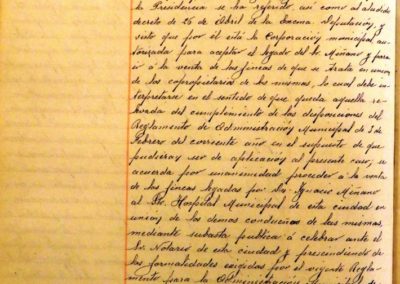 la Presidencia se ha referido, así como al aludido
decreto de 26 de Abril de la Excma. Diputación, y
visto que por él está la Corporación municipal au-
torizada para aceptar el legado del Sr. Miñano y para
ir á la venta de las fincas de que se trata en unión
de los copropietarios de las mismas, lo cual debe in-
terpretarse en el sentido de que queda aquella re-
levada del cumplimiento de las disposiciones del
Reglamento de Administración Municipal de 3 de
Febrero del corriente año en el supuesto de que
pudieran ser de aplicación al presente caso; se
acuerda por unanimidad proceder á la venta
de las fincas legadas por Dn. Ignacio Miñano
al Sto. Hospital Municipal de esta ciudad en
unión de los demas condueños de las mismas,
mediante subasta pública á celebrar ante el
Sr. Notario de esta ciudad y prescindiendo de
las formalidades exigidas por el vigente Regla-
mento para la Administración